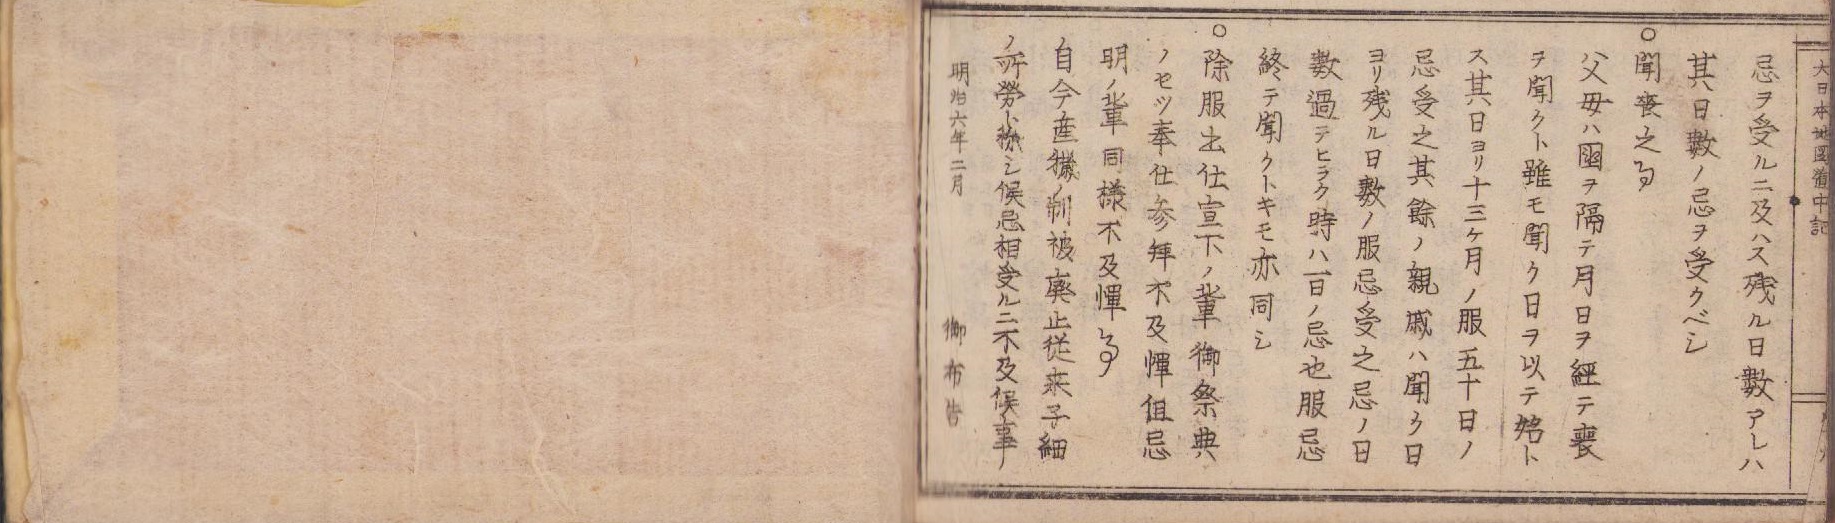 忌ヲ受ルニ及ハス残ル日數アレハ
其日數ノ忌ヲ受クベシ
○聞喪之事
父毋ハ國ヲ隔テ月日ヲ經テ喪
ヲ聞クト雖モ聞ク日ヲ以テ始ト
ス其日ヨリ十三ケ月ノ服五十日ノ
忌受之其餘ノ親戚ハ聞ク日
ヨリ残ル日數ノ服忌受之忌ノ日
數過テヒラク時ハ一日ノ忌也服忌
終テ聞クトキモ亦同シ
○除服出仕宣下ノ輩御祭典
ノセツ奉仕参拜不及憚但忌
明ノ輩同様不及憚事
自今産穢ノ制被廃止従来子細
ノ所勞ト称シ候忌相受ルニ不及候事
明治六年二月
御布告
大日本地圖道中記